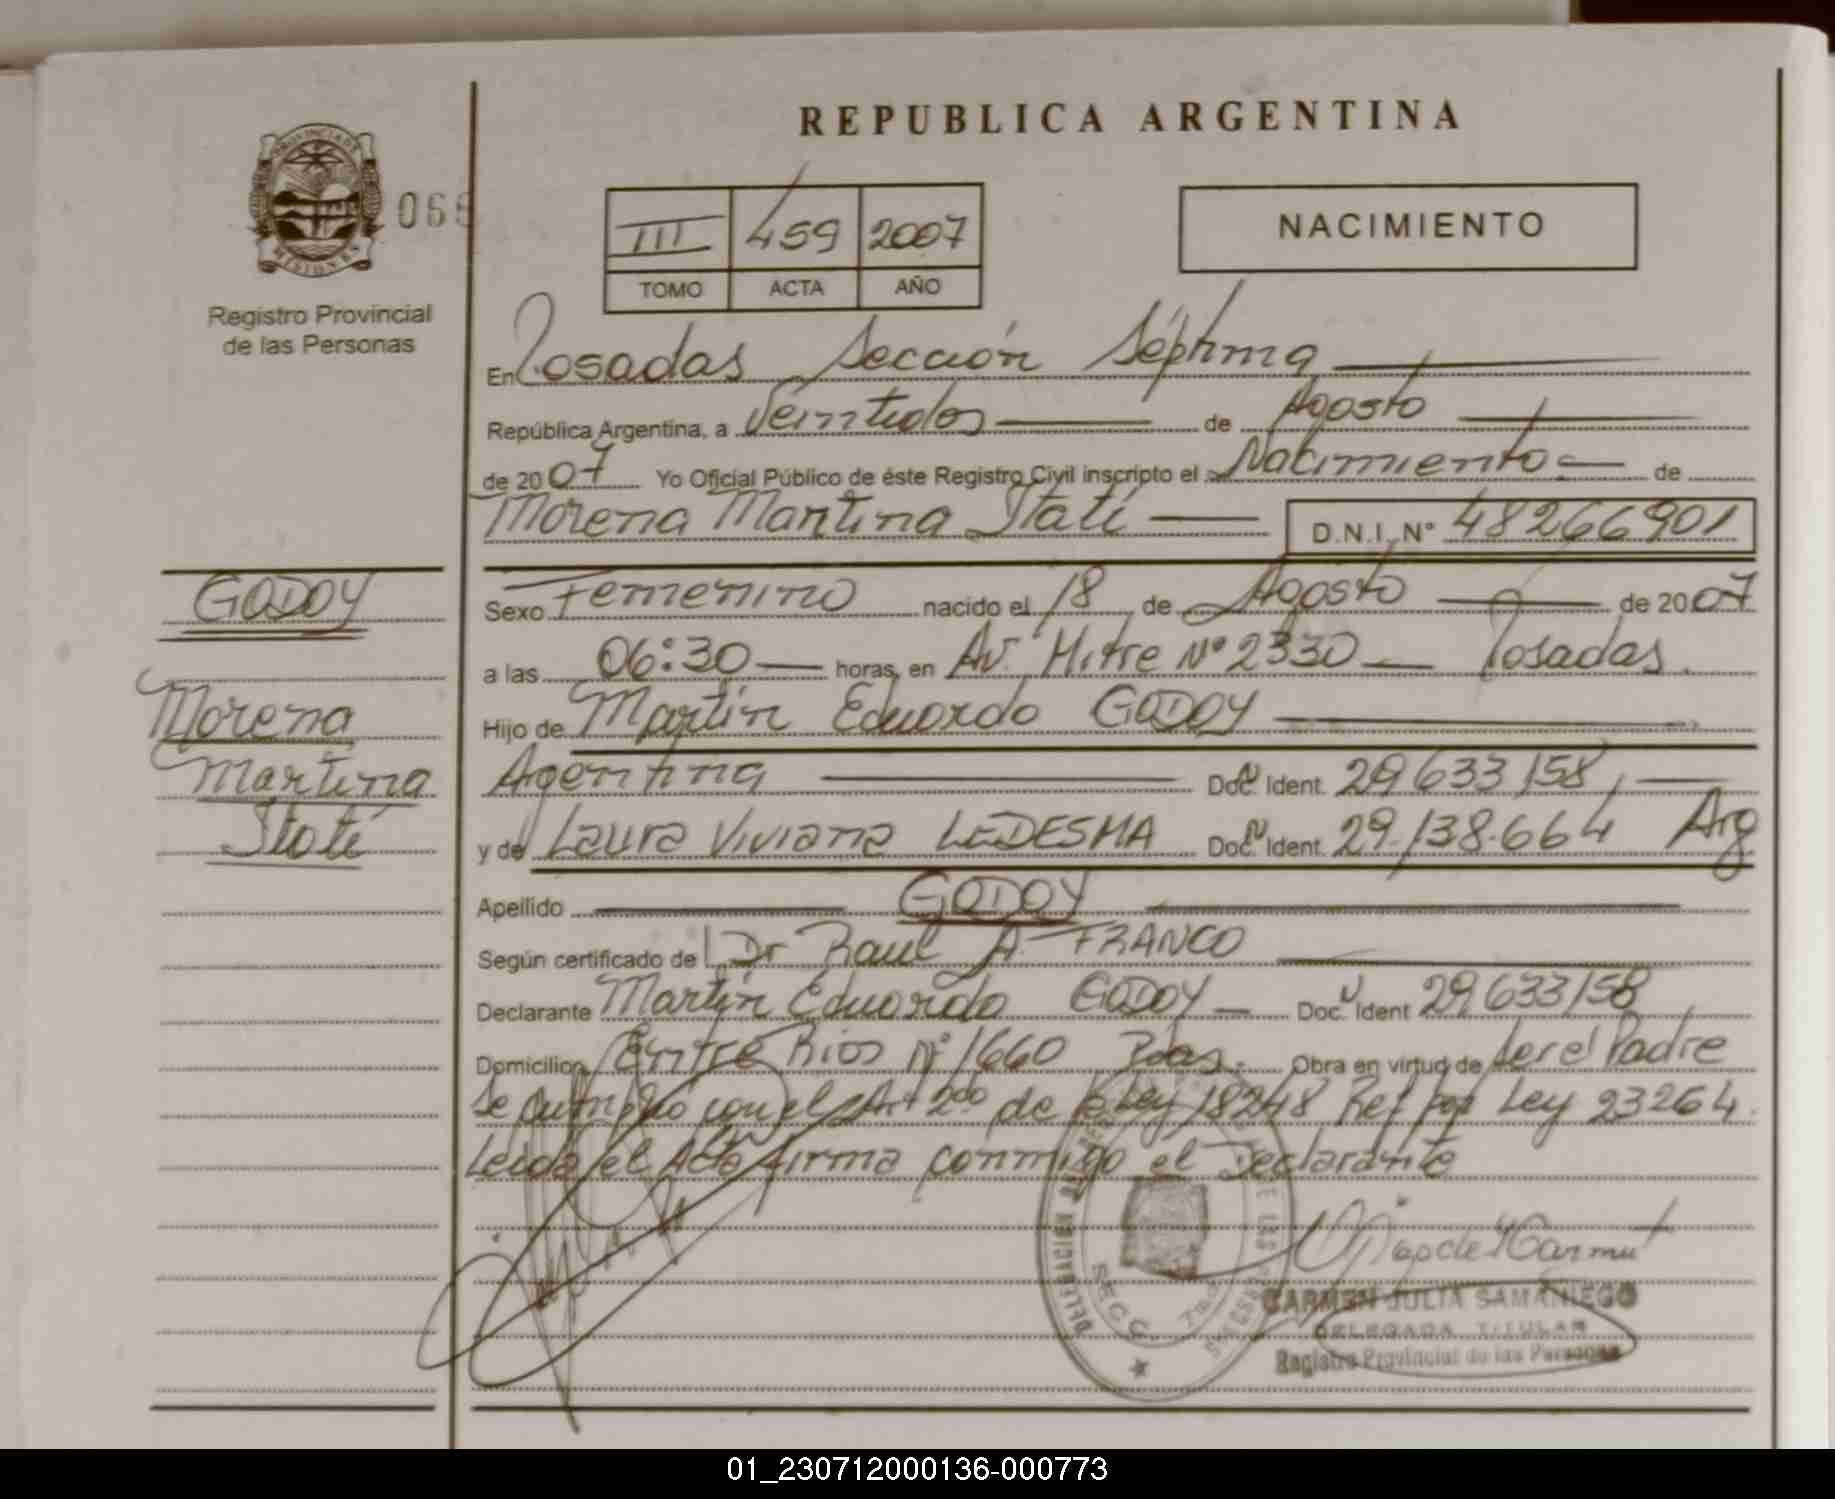 REPUBLICA ARGENTINA
PROVINCIA DE
MISIONES
066
Registro Provincial
de las Personas
III 459 2007
TOMO ACTA AÑO
NACIMIENTO
En Posadas Sección Séptima
República Argentina, a Veintidos de Agosto
de 2007 Yo Oficial Público de éste Registro Civil inscripto el Nacimiento de
Morena Martina Itatí D.N.I. N° 48266901
GODOY
Morena
Martina
Itatí
Sexo Femenino nacido el 18 de Agosto de 2007
a las 06:30 horas, en Av. Mitre N° 2330 Posadas.
Hijo de Martín Eduardo GODOY
Agentina Doc. Ident. 29.633.158
y de Laura Viviana LEDESMA Doc. Ident. 29.138.664 Arg
Apellido GODOY
Según certificado de Dr Raul A. FRANCO
Declarante Martín Eduardo GODOY Doc. Ident 29.633.158
Domicilio Entre Rios N° 1660 Pdas. Obra en virtud de ser el Padre
Se cumplió con el Art 2do de la Ley 18248 Ref por Ley 23264.
Leida el Acta firma conmigo el Declarante
DELEGACION
SECC. 7ma
CARMEN JULIA SAMANIEGO
DELEGADA TITULAR
Registro Provincial de las Personas
01_230712000136-000773